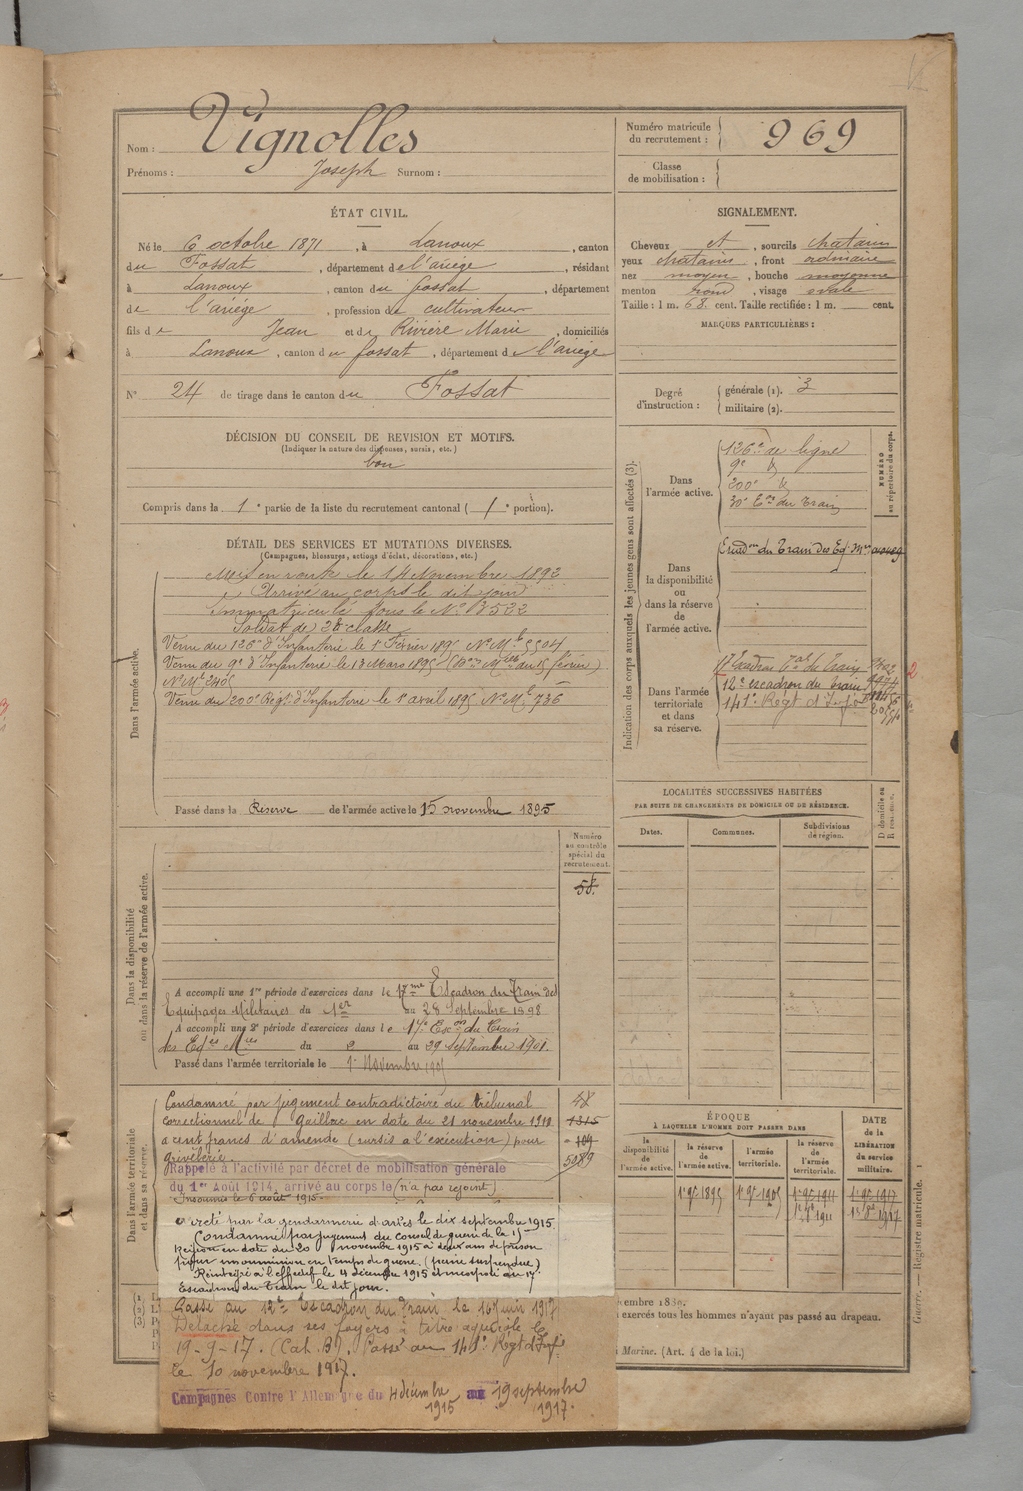 Nom : Vignolles
Prénoms : Joseph Surnom :
Numéro matricule du recrutement : 969
Classe de mobilisation :
ÉTAT CIVIL.
Né le 6 octobre 1871, à Lanoux, canton
du Fossat, département de l'ariège, résidant
à Lanoux, canton du fossat, département
de l'ariège, profession de cultivateur
fils de Jean et de Rivière Marie, domiciliés
à Lanoux, canton du fossat, département de l'ariège
N° 24 de tirage dans le canton du Fossat
SIGNALEMENT.
Cheveux et, sourcils chatains
yeux chatains, front ordinaire
nez moyen, bouche moyenne
menton rond, visage ovale
Taille : 1 m. 68 cent. Taille rectifiée : 1 m. cent.
MARQUES PARTICULIÈRES :
Degré d'instruction : générale (1). 3
militaire (2).
DÉCISION DU CONSEIL DE REVISION ET MOTIFS.
(Indiquer la nature des dispenses, sursis, etc.)
bon
Compris dans la 1e partie de la liste du recrutement cantonal (1e portion).
DÉTAIL DES SERVICES ET MUTATIONS DIVERSES.
(Campagnes, blessures, actions d'éclat, décorations, etc.)
Dans l'armée active.
Mis en route le 14 Novembre 1892
Arrivé au corps le dit jour
Immatriculé sous le N°
Soldat de 2e classe
Venu du 126e d'Infanterie le 1er Février 1895 N° Mle 5504
Venu du 9e d'Infanterie le 13 Mars 1895
Venu du 200e Régt d'Infanterie le 1er avril 1895 N° Mle 736
Passé dans la Réserve de l'armée active le 15 novembre 1895
Indication des corps auxquels les jeunes gens sont affectés (3).
NUMÉRO au répertoire du corps.
Dans l'armée active.
126e de ligne
9e
200e
30e Eon du Train
Dans la disponibilité ou dans la réserve de l'armée active.
Escadon du Train des Eq. Mres
Dans l'armée territoriale et dans sa réserve.
17 Escadron du Train
12e escadron du train
141e Régt d'Infie
LOCALITÉS SUCCESSIVES HABITÉES
PAR SUITE DE CHANGEMENTS DE DOMICILE OU DE RÉSIDENCE.
Dates. Communes. Subdivisions de région. D domicile ou R résidence.
Dans la disponibilité ou dans la réserve de l'armée active.
Numéro au contrôle spécial du recrutement.
58
A accompli une 1re période d'exercices dans le 17me Escadron du Train des
Equipages Militaires du 1er au 28 Septembre 1898
A accompli une 2e période d'exercices dans le 17e Escon du Train
des Eqges Mres du 2 au 29 septembre 1901.
Passé dans l'armée territoriale le 1er Novembre 1905
Dans l'armée territoriale et dans sa réserve.
Condamné par jugement contradictoire du tribunal
correctionnel de Gaillac en date du 21 novembre 1910
a cent francs d'amende (sursis a l'exécution) pour
grivèlerie.
1315
109
5089
Rappelé à l'activité par décret de mobilisation générale
du 1er Août 1914, arrivé au corps le (n'a pas rejoint)
Insoumis le 6 août 1915.
arreté par la gendarmerie d'arles le dix septembre 1915
Condamné par jugement du Conseil de guerre de la 15
Région en date du 20 novembre 1915 à deux ans de prison
pour insoumission en temps de guerre. (peine suspendue)
Réintégré à l'effectif le 4 décembre 1915 et incorporé au 17e
Escadron du Train le dit jour.
Passé au 12e Escadron du Train le 16 juin 1917
Détaché dans ses foyers à titre agricole le
19-9-17. (Cat. B). Passé au 141e Régt d'Infie
le 10 novembre 1917.
Campagnes Contre l'Allemagne du 4 décembre 1915 au 19 septembre 1917.
ÉPOQUE
À LAQUELLE L'HOMME DOIT PASSER DANS
la disponibilité de l'armée active. la réserve de l'armée active. l'armée territoriale. la réserve de l'armée territoriale.
DATE de la LIBÉRATION du service militaire.
1er 9re 1895 1er 9re 1905 1er 9re 1911 1er 9re 1917
exercés tous les hommes n'ayant pas passé au drapeau.
Marine. (Art. 4 de la loi.)
Guerre. — Registre matricule. 1